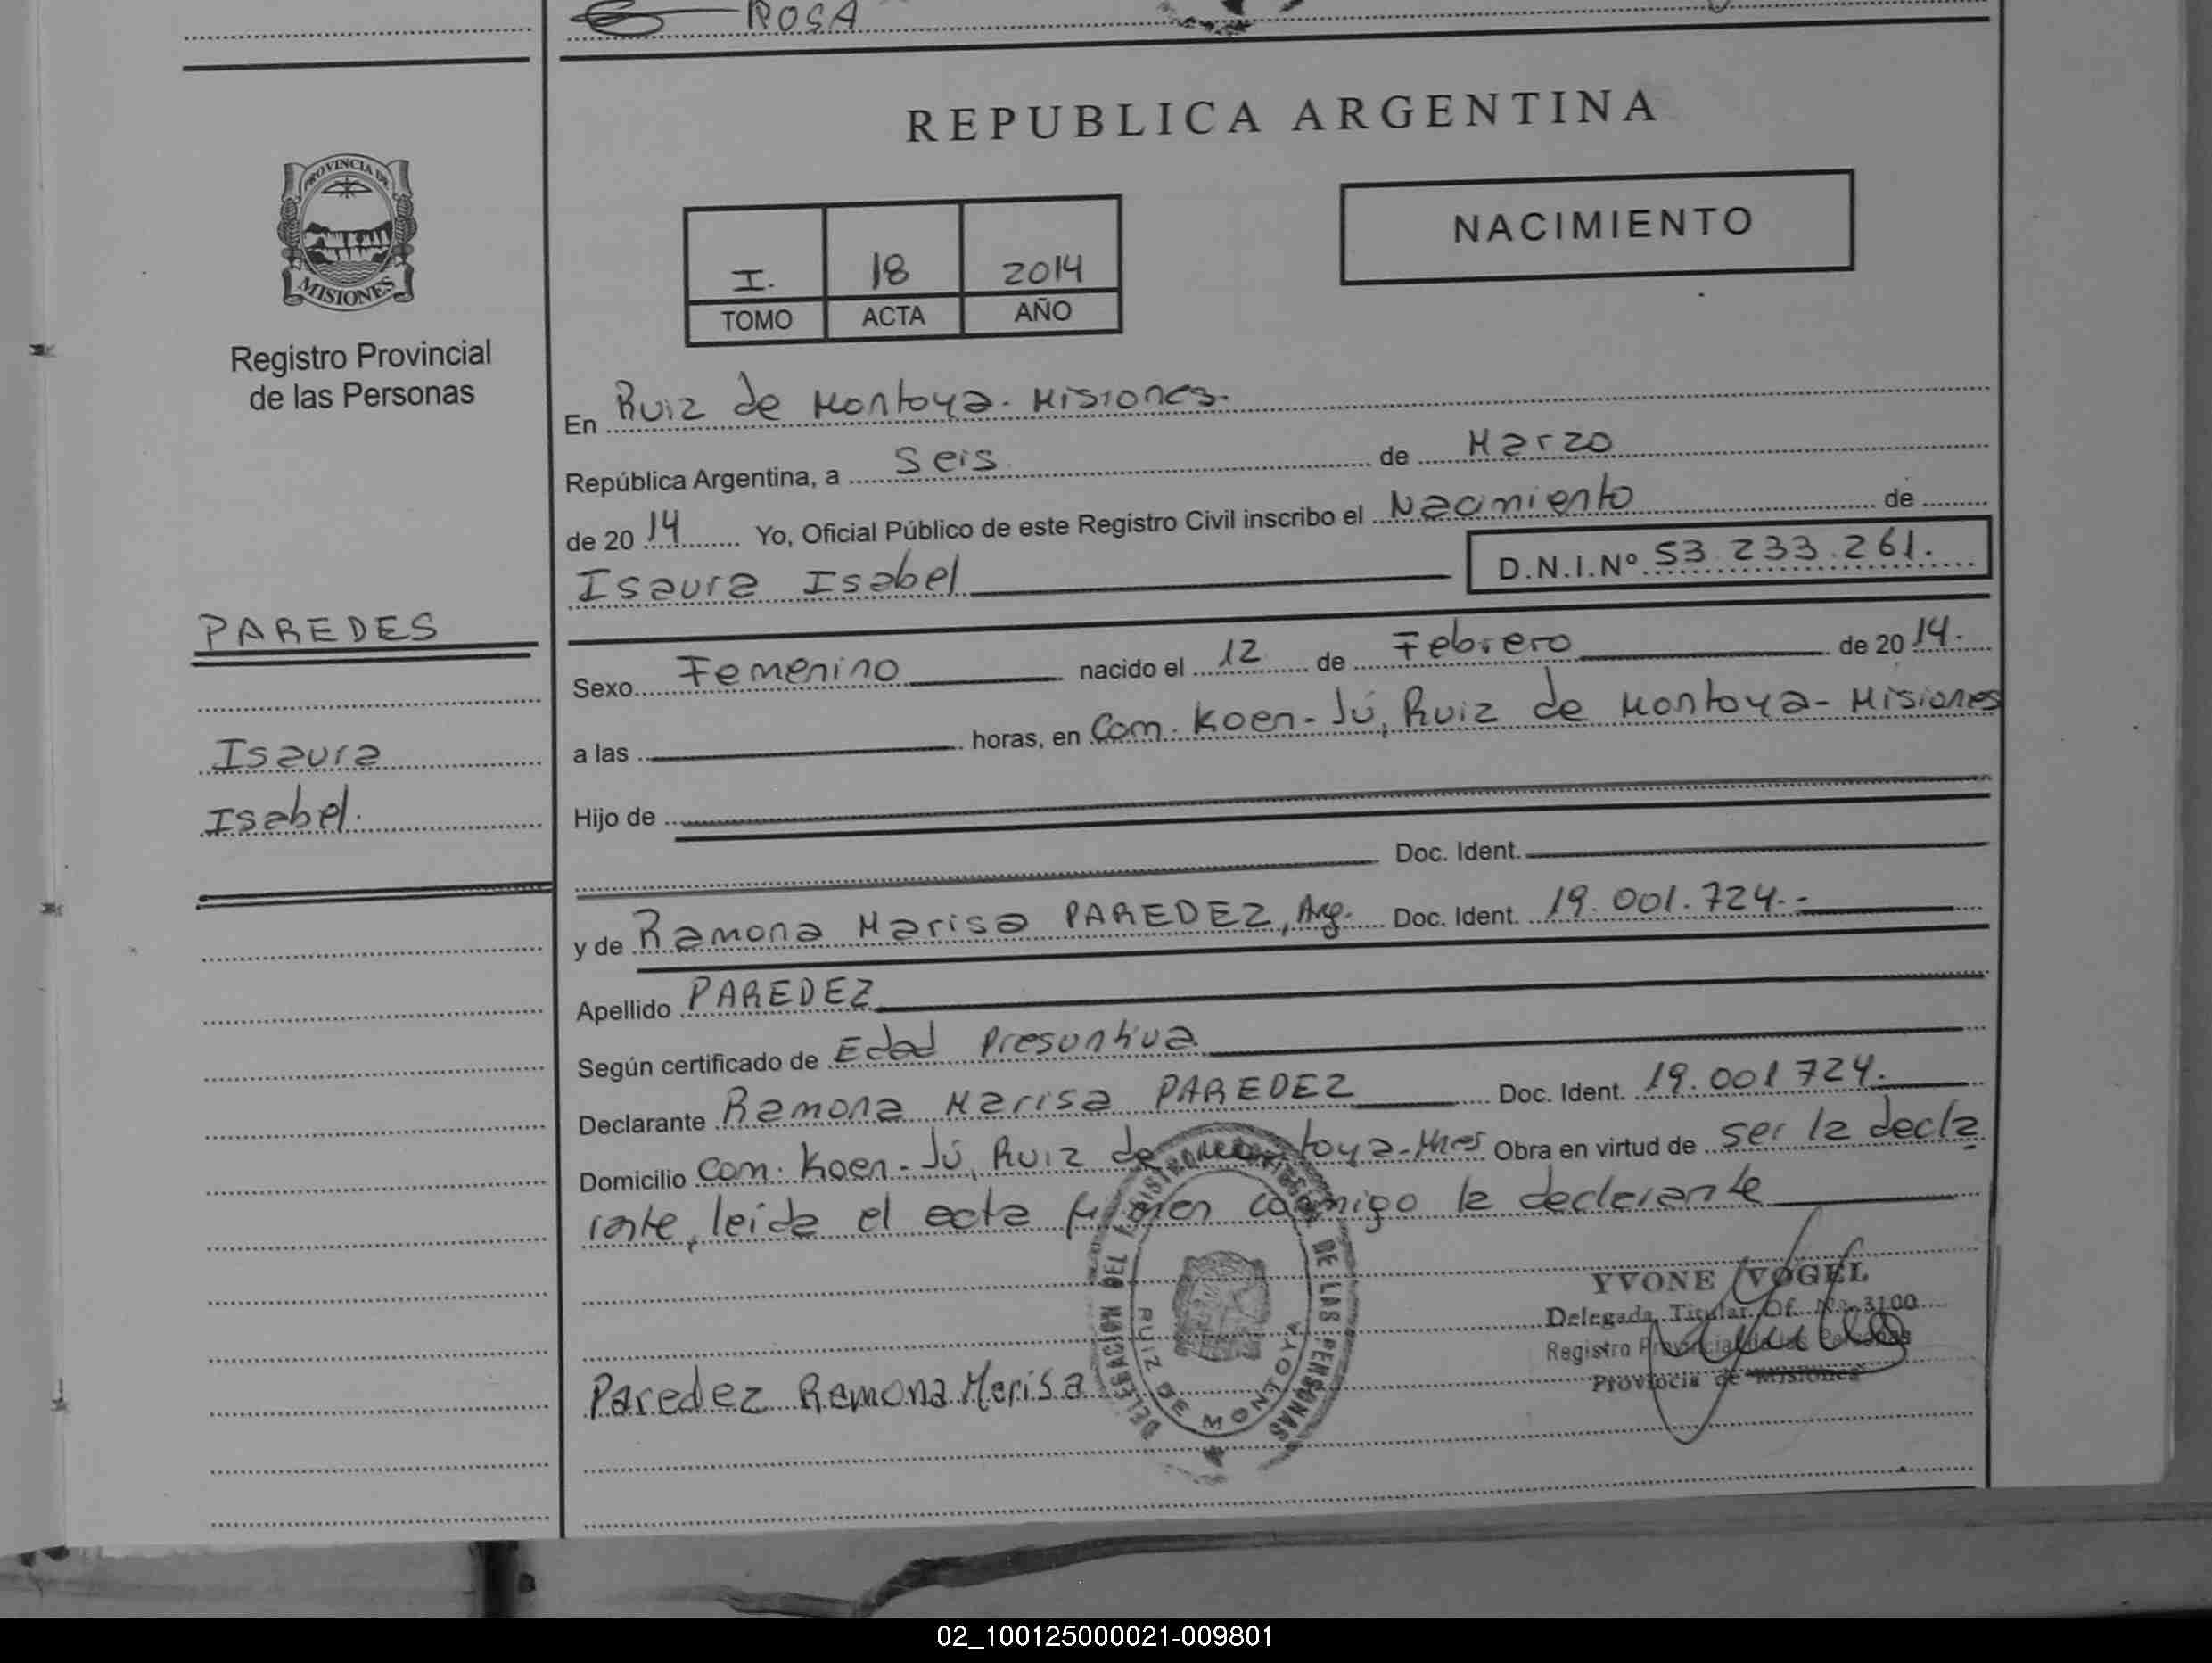 ROSA
REPUBLICA ARGENTINA
PROVINCIA DE
MISIONES
Registro Provincial
de las Personas
NACIMIENTO
I. 18 2014
TOMO ACTA AÑO
En Ruiz de Montoya - Misiones.
República Argentina, a Seis de Marzo
de 20 14 Yo, Oficial Público de este Registro Civil inscribo el Nacimiento de
Isaura Isabel D.N.I.Nº 53.233.261.
PAREDES
Isaura
Isabel.
Sexo Femenino nacido el 12 de Febrero de 20 14.
a las horas, en Com. Koen-Jú, Ruiz de Montoya - Misiones
Hijo de
Doc. Ident.
y de Ramona Marisa PAREDEZ, Arg. Doc. Ident. 19.001.724.-
Apellido PAREDEZ
Según certificado de Edad Presuntiva
Declarante Ramona Marisa PAREDEZ Doc. Ident. 19.001.724.
Domicilio Com. Koen-Jú, Ruiz de Montoya - Mnes Obra en virtud de ser la decla
rante, leida el acta firman conmigo la declarante
YVONE VOGEL
Delegada Titular Of. Nº 3100
Registro Provincial de las Personas
Provincia de Misiones
Paredez Ramona Marisa
DELEGACION DEL REGISTRO PROVINCIAL DE LAS PERSONAS
RUIZ DE MONTOYA
02_100125000021-009801